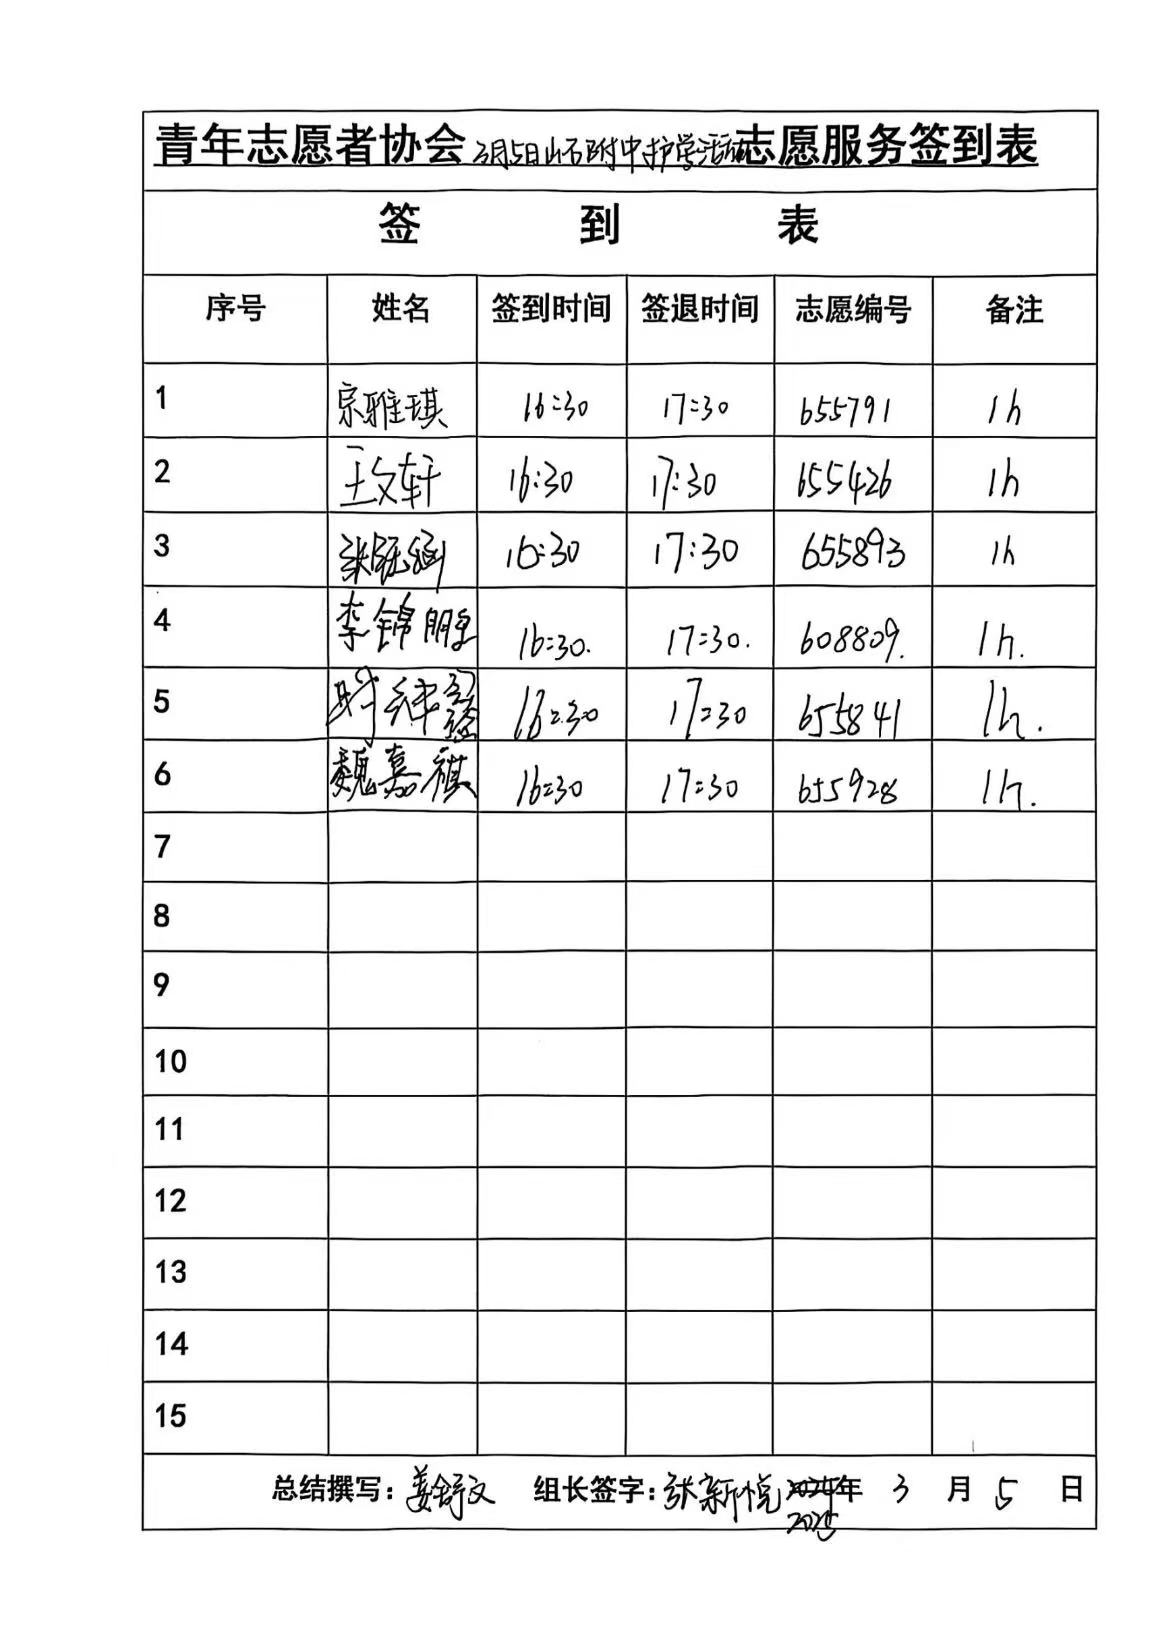 青年志愿者协会3月5日山石附中护学活动志愿服务签到表
签 到 表
序号 姓名 签到时间 签退时间 志愿编号 备注
1 宗雅琪 16:30 17:30 655791 1h
2 王文轩 16:30 17:30 655426 1h
3 张钰涵 16:30 17:30 655893 1h
4 李锦 16:30. 17:30. 608809. 1h.
5 时 16:30 17:30 655841 1h.
6 魏嘉祺 16:30 17:30 655928 1h.
7
8
9
10
11
12
13
14
15
总结撰写：姜舒文 组长签字：张新悦 年 3 月 5 日
2025